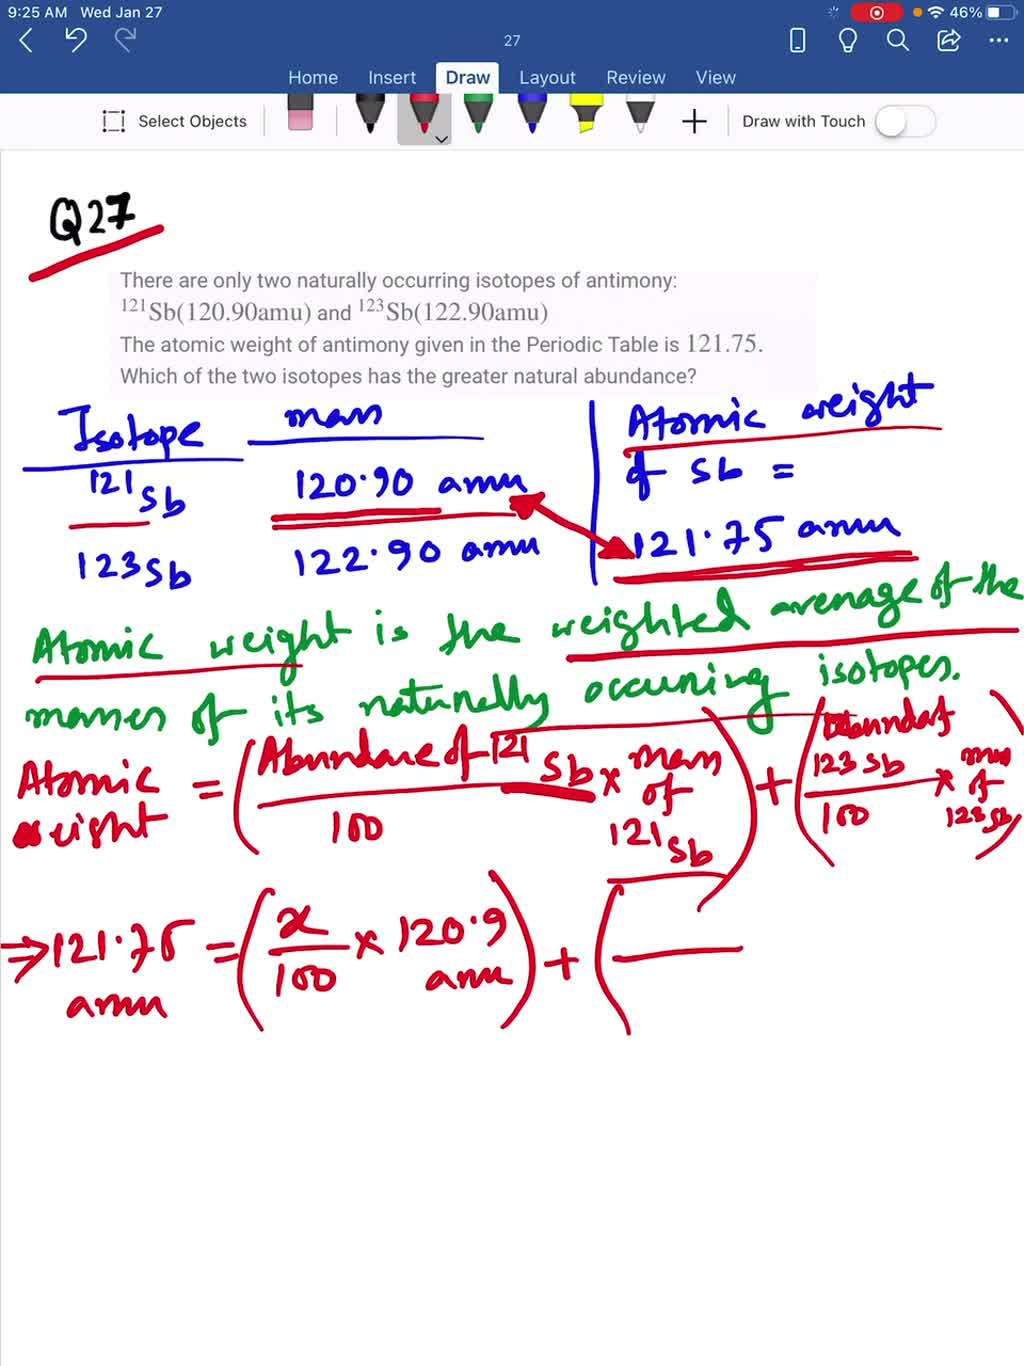 9:25 AM Wed Jan 27
46%
27
Home Insert Draw Layout Review View
Select Objects
Draw with Touch
Q27
There are only two naturally occurring isotopes of antimony:
¹²¹Sb(120.90amu) and ¹²³Sb(122.90amu)
The atomic weight of antimony given in the Periodic Table is 121.75.
Which of the two isotopes has the greater natural abundance?
Isotope mass
¹²¹Sb 120.90 amu
123Sb 122.90 amu
Atomic weight
of Sb =
121.75 amu
Atomic weight is the weighted average of the
masses of its naturally occuring isotopes.
Atomic weight = (Abundance of 121 Sb / 100 × mass of 121 Sb) + (Abund of 123 Sb / 100 × mass of 123 Sb)
⇒ 121.75 amu = (x / 100 × 120.9 amu) + (